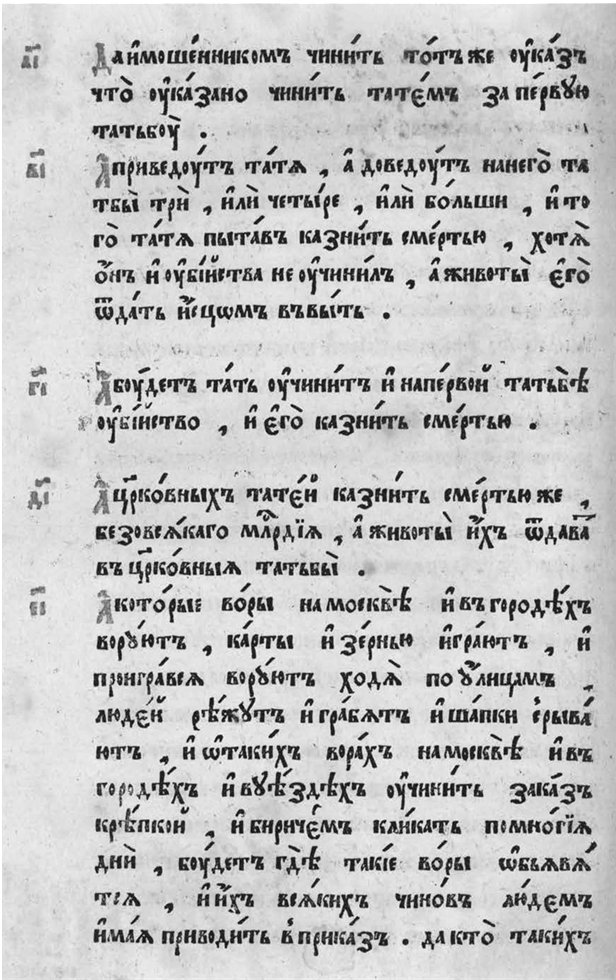 а҃і Да и҆ моше́нникомъ чини́ть то́тъ же ᲂу҆ка́зъ
что̀ ᲂу҆ка́зано чини́ть тате́мъ за пе́рвую
татьбꙋ̀ .
в҃і А҆ приведꙋ́тъ та́тѧ , а҆ доведꙋ́тъ на него̀ та
тбы̀ трѝ , и҆лѝ четы́ре , и҆лѝ бо́льши , и҆ то
го̀ та́тѧ пыта́въ казни́ть сме́ртью , хотѧ̀
ѻ҆́нъ и҆ ᲂу҆бі́йства не ᲂу҆чини́лъ , а҆ животы̀ є҆го̀
ѿда́ть и҆сцомъ въ вы́ть .
г҃і А҆ бꙋ́детъ та́ть ᲂу҆чини́тъ и҆ на пе́рвой татьбѣ̀
ᲂу҆бі́йство , и҆ є҆го̀ казни́ть сме́ртью .
д҃і А҆ цр҃ко́вныхъ тате́й казни́ть сме́ртью же ,
безо всѧ́каго млⷭ҇рдїѧ , а҆ животы̀ и҆́хъ ѿдава́т
въ цр҃ко́вныѧ татьбы̀ .
є҃і А҆ кото́рые во́ры на москвѣ̀ и҆ въ городѣ́хъ
ворꙋ́ютъ , ка́рты и҆ зе́рнью и҆гра́ютъ , и҆
проигра́всѧ ворꙋ́ютъ ходѧ̀ по ᲂу҆́лицамъ ,
люде́й рѣ́жутъ и҆ гра́бѧтъ и҆ ша́пки срыва́
ютъ , и҆ ѡ҆ таки́хъ вора́хъ на москвѣ̀ и҆ въ
городѣ́хъ и҆ в уѣ́здѣхъ ᲂу҆чини́ть зака́зъ
крѣ́пкой , и҆ биричє́мъ кли́кать по мно́гїѧ
днѝ , бꙋ́детъ гдѣ̀ такі́е во́ры ѡ҆бъѧвѧ́
тсѧ , и҆ и҆́хъ всѧ́кихъ чино́въ лю́демъ
и҆ма́ѧ приводи́ть в прика́зъ . да кто̀ таки́хъ